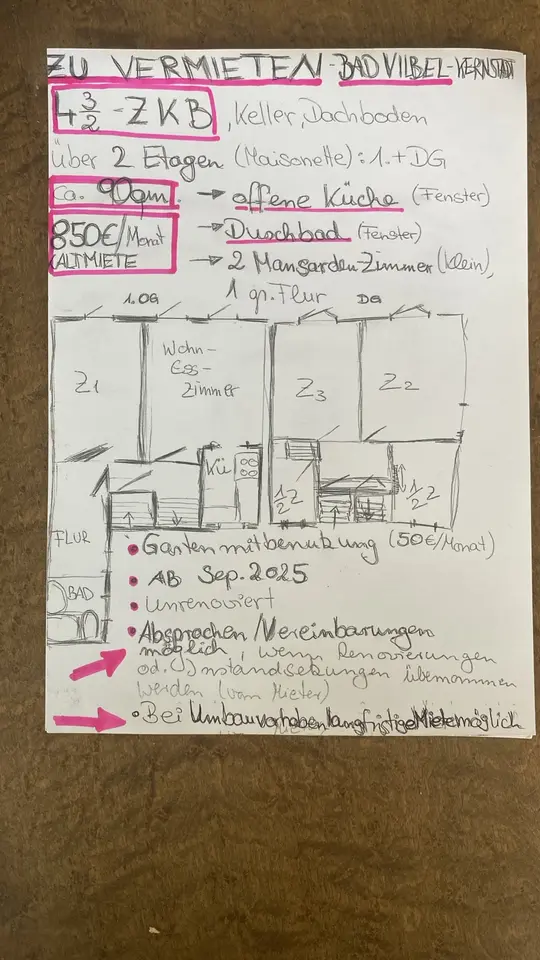 ZU VERMIETEN - BAD VILBEL - KERNSTADT
4 3/2 - ZKB, Keller, Dachboden
über 2 Etagen (Maisonette): 1. + DG
Ca. 90qm. → offene Küche (Fenster)
850€/Monat → Duschbad (Fenster)
KALTMIETE → 2 Mansarden-Zimmer (klein),
1 gr. Flur
1.OG DG
Z1
Wohn-
Ess-
Zimmer
Z3
Z2
KÜ
1/2 Z
1/2 Z
FLUR
BAD
• Garten mitbenutzung (50€/Monat)
• AB Sep. 2025
• Unrenoviert
• Absprachen/Vereinbarungen
möglich, wenn Renovierungen
od. (I)nstandsetzungen übernommen
werden (vom Mieter)
• Bei Umbauvorhaben langfristige Miete möglich